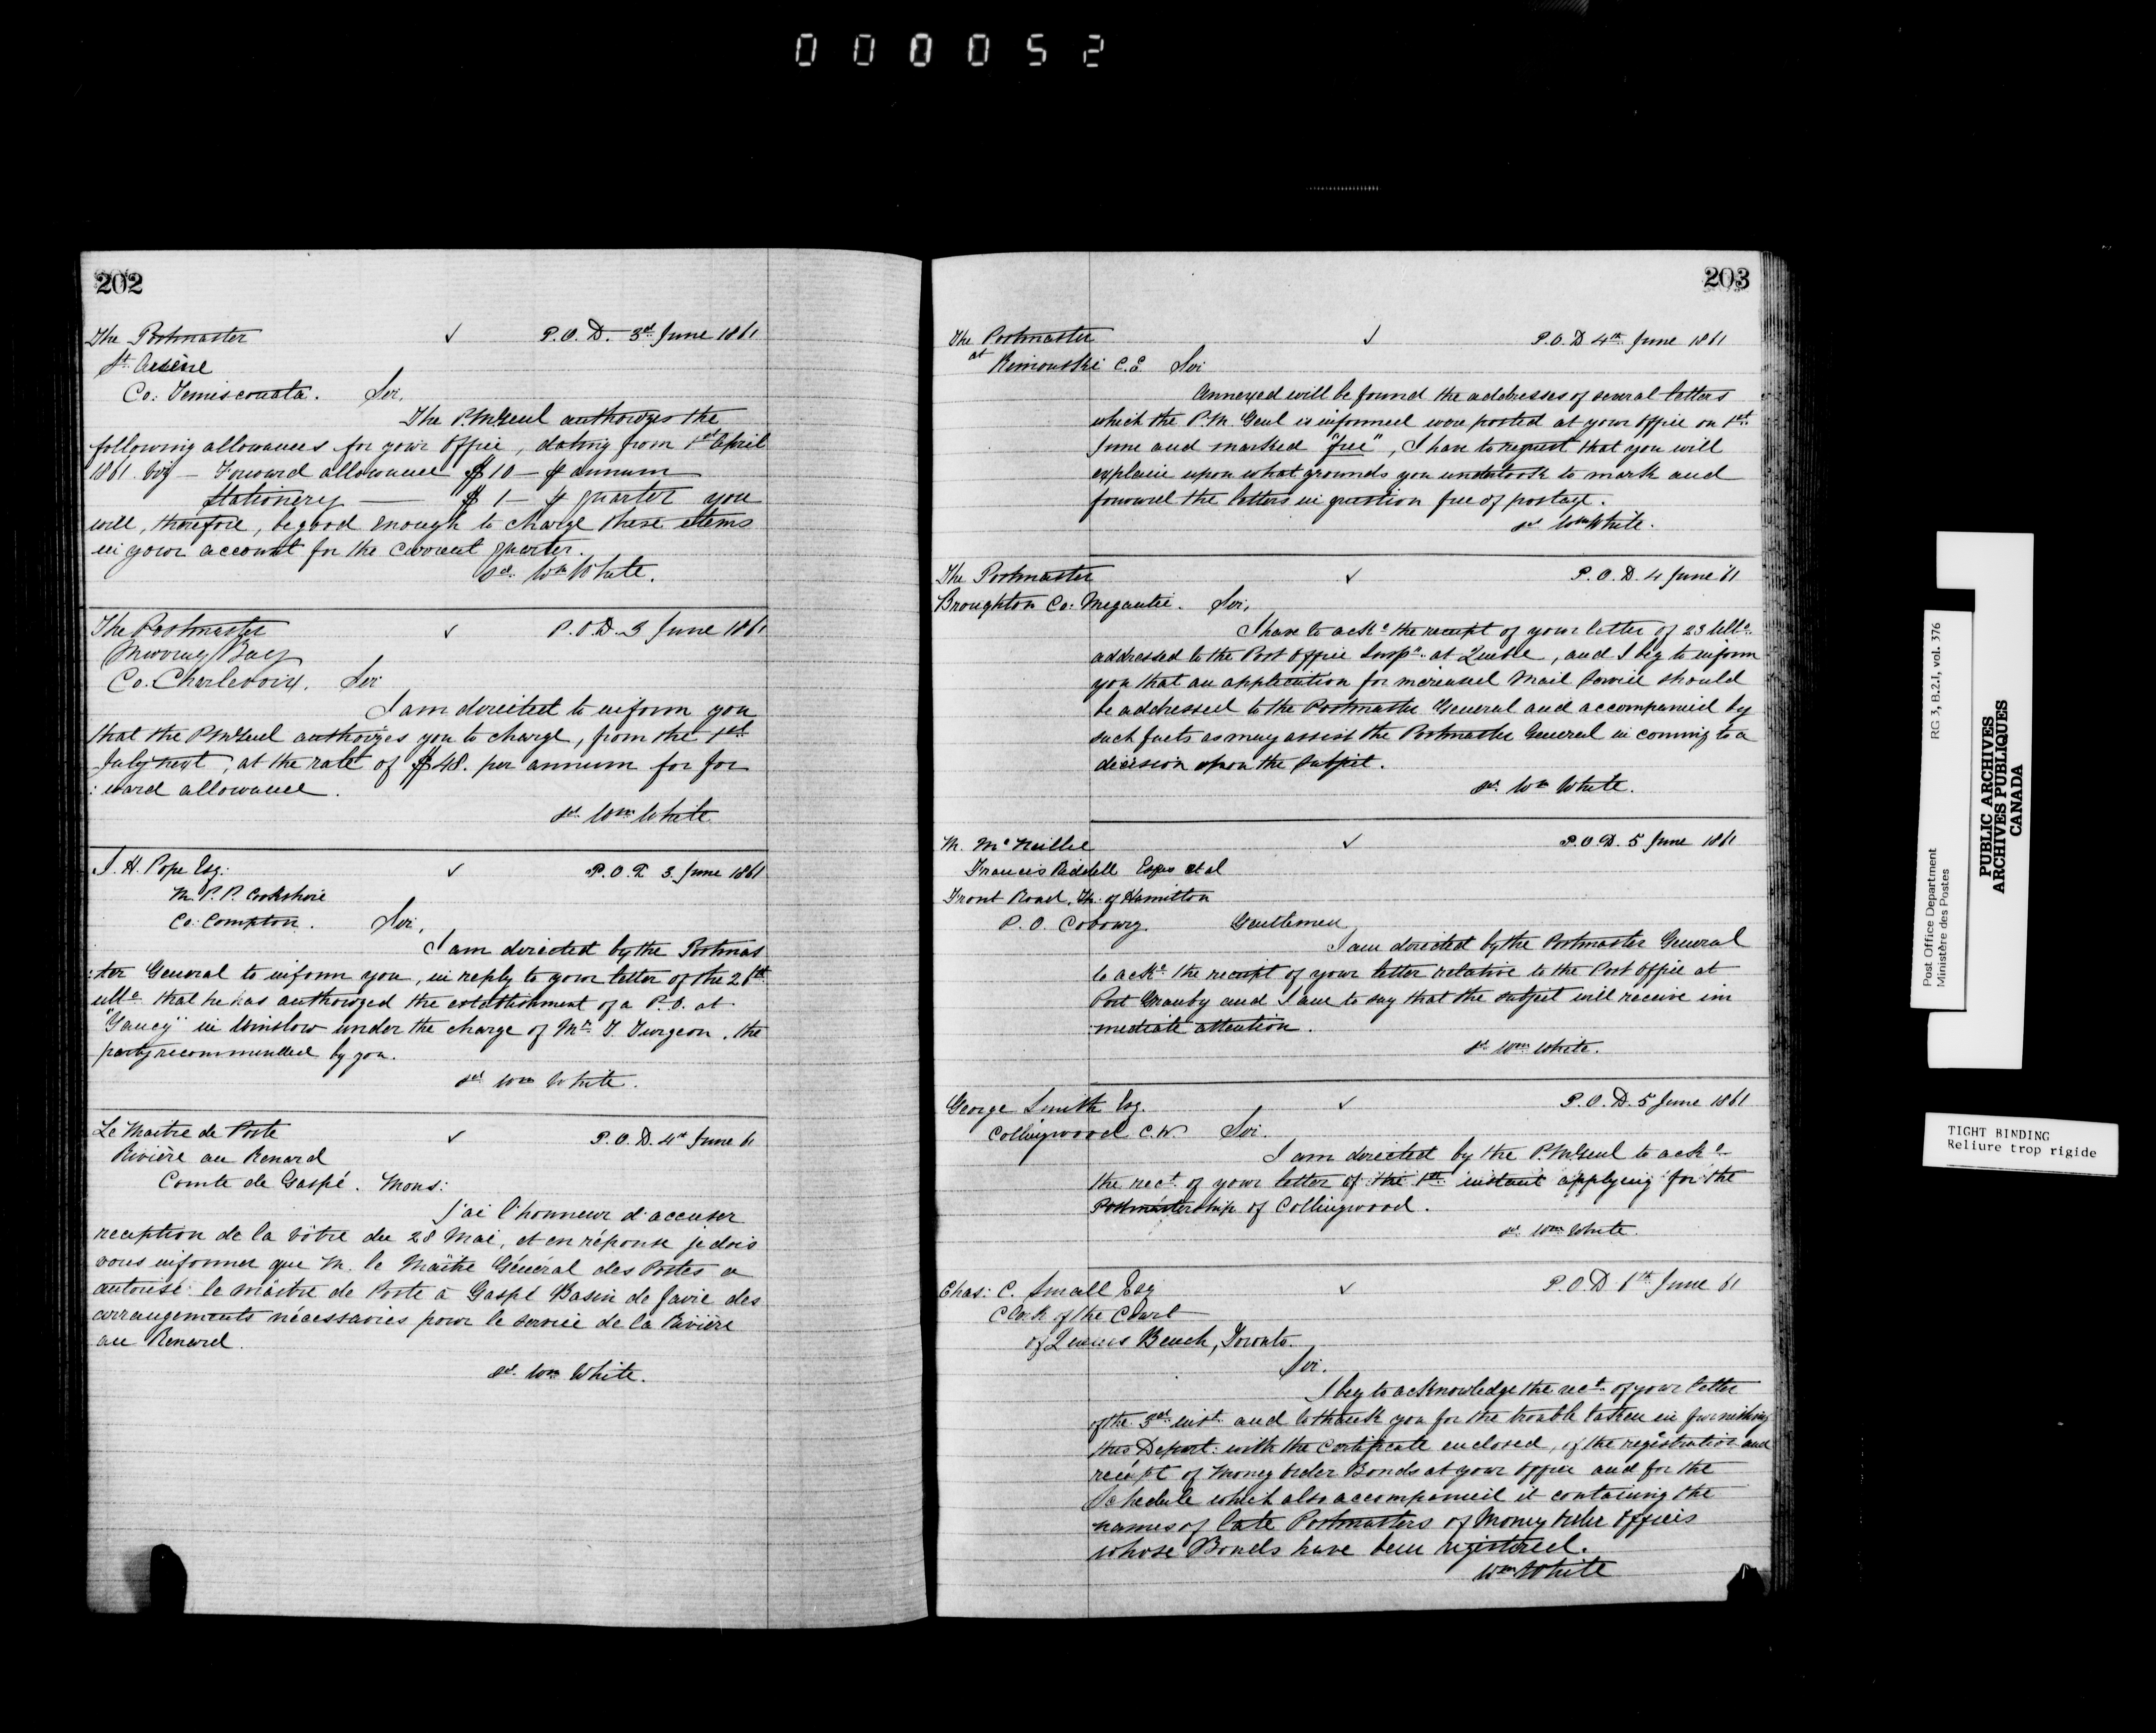 000052
202
The Postmaster ✓ P.O.D. 3rd June 1861
St Arsène
Co: Temiscouata. Sir,
The P.M. Genl authorizes the
following allowances for your office, dating from 1st April
1861. viz — Forward allowance $10 — ⅌ annum
Stationery — $1 — ⅌ quarter you
will, therefore, be good enough to charge these items
in your account for the current quarter.
sd. Wm White.
The Postmaster ✓ P.O.D. 3 June 1861
Murray Bay
Co. Charlevoix. Sir
I am directed to inform you
that the P.M. Genl authorizes you to charge, from the 1st
July next, at the rate of $48. per annum for for
:ward allowance.
sd. Wm White
J. H. Pope Esq: ✓ P.O.D. 3. June 1861
M.P.P. Cookshire
Co: Compton. Sir,
I am directed by the Postmas
:ter General to inform you, in reply to your letter of the 26th
ulto that he has authorized the establishment of a P.O. at
"Gaucy" in Winslow under the charge of Mr. T. Turgeon, the
party recommended by you.
sd. Wm White.
Le Maitre de Poste ✓ P.O.D. 4th June 61
Rivière au Renard
Comte de Gaspé. Mons:
J'ai l'honneur d'accuser
reception de la vôtre du 28 Mai, et en réponse je dois
vous informer que M. le Maître Général des Postes a
autorisé le maître de Poste à Gaspé Basin de favie des
arrangements nécessaries pour le service de la Rivière
au Renard.
sd. Wm White.
203
The Postmaster ✓ P.O.D 4th June 1861
at Rimouski C.E. Sir
Annexed will be found the addresses of several letters
which the P.M. Genl is informed were posted at your office on 1st
June and marked "free", I have to request that you will
explain upon what grounds you undertook to mark and
forward the letters in question free of postage.
sd Wm White.
The Postmaster ✓ P.O.D. 4 June '61
Broughton Co: Megantic. Sir,
I have to acke the receipt of your letter of 23 ulto.
addressed to the Post Office Inspr. at Quebec, and I beg to inform
you that an application for increased Mail Service should
be addressed to the Postmaster General and accompanied by
such facts as may assist the Postmaster General in coming to a
decision upon the subject.
sd. Wm White.
M. McNeillie ✓ P.O.D. 5 June 1861
Francis Riddell Esqrs et al
Front Road, Th. of Hamilton
P.O. Cobourg. Gentlemen,
I am directed by the Postmaster General
to acke. the receipt of your letter relative to the Post Office at
Port Granby and I am to say that the subject will receive im
mediate attention.
sd. Wm White.
George Smith Esq. ✓ P.O.D. 5 June 1861
Collingwood C.W. Sir.
I am directed by the P.M. Genl to acke
the rect. of your letter of the 1st instant applying for the
Postmastership of Collingwood.
sd. Wm White.
Chas: C. Small Esq ✓ P.O.D 6th June 61
Clerk of the Court
of Queens Bench, Toronto.
Sir.
I beg to acknowledge the rect. of your letter
of the 3rd inst. and to thank you for the trouble taken in furnishing
this Depart: with the Certificate enclosed, of the registration and
receipt of Money Order Bonds at your office and for the
Schedule which also accompanied it containing the
names of late Postmasters of Money Order Offices
whose Bonds have been registered.
Wm White
Post Office Department RG 3, B.2.I, vol. 376
Ministère des Postes
PUBLIC ARCHIVES
ARCHIVES PUBLIQUES
CANADA
TIGHT BINDING
Reliure trop rigide